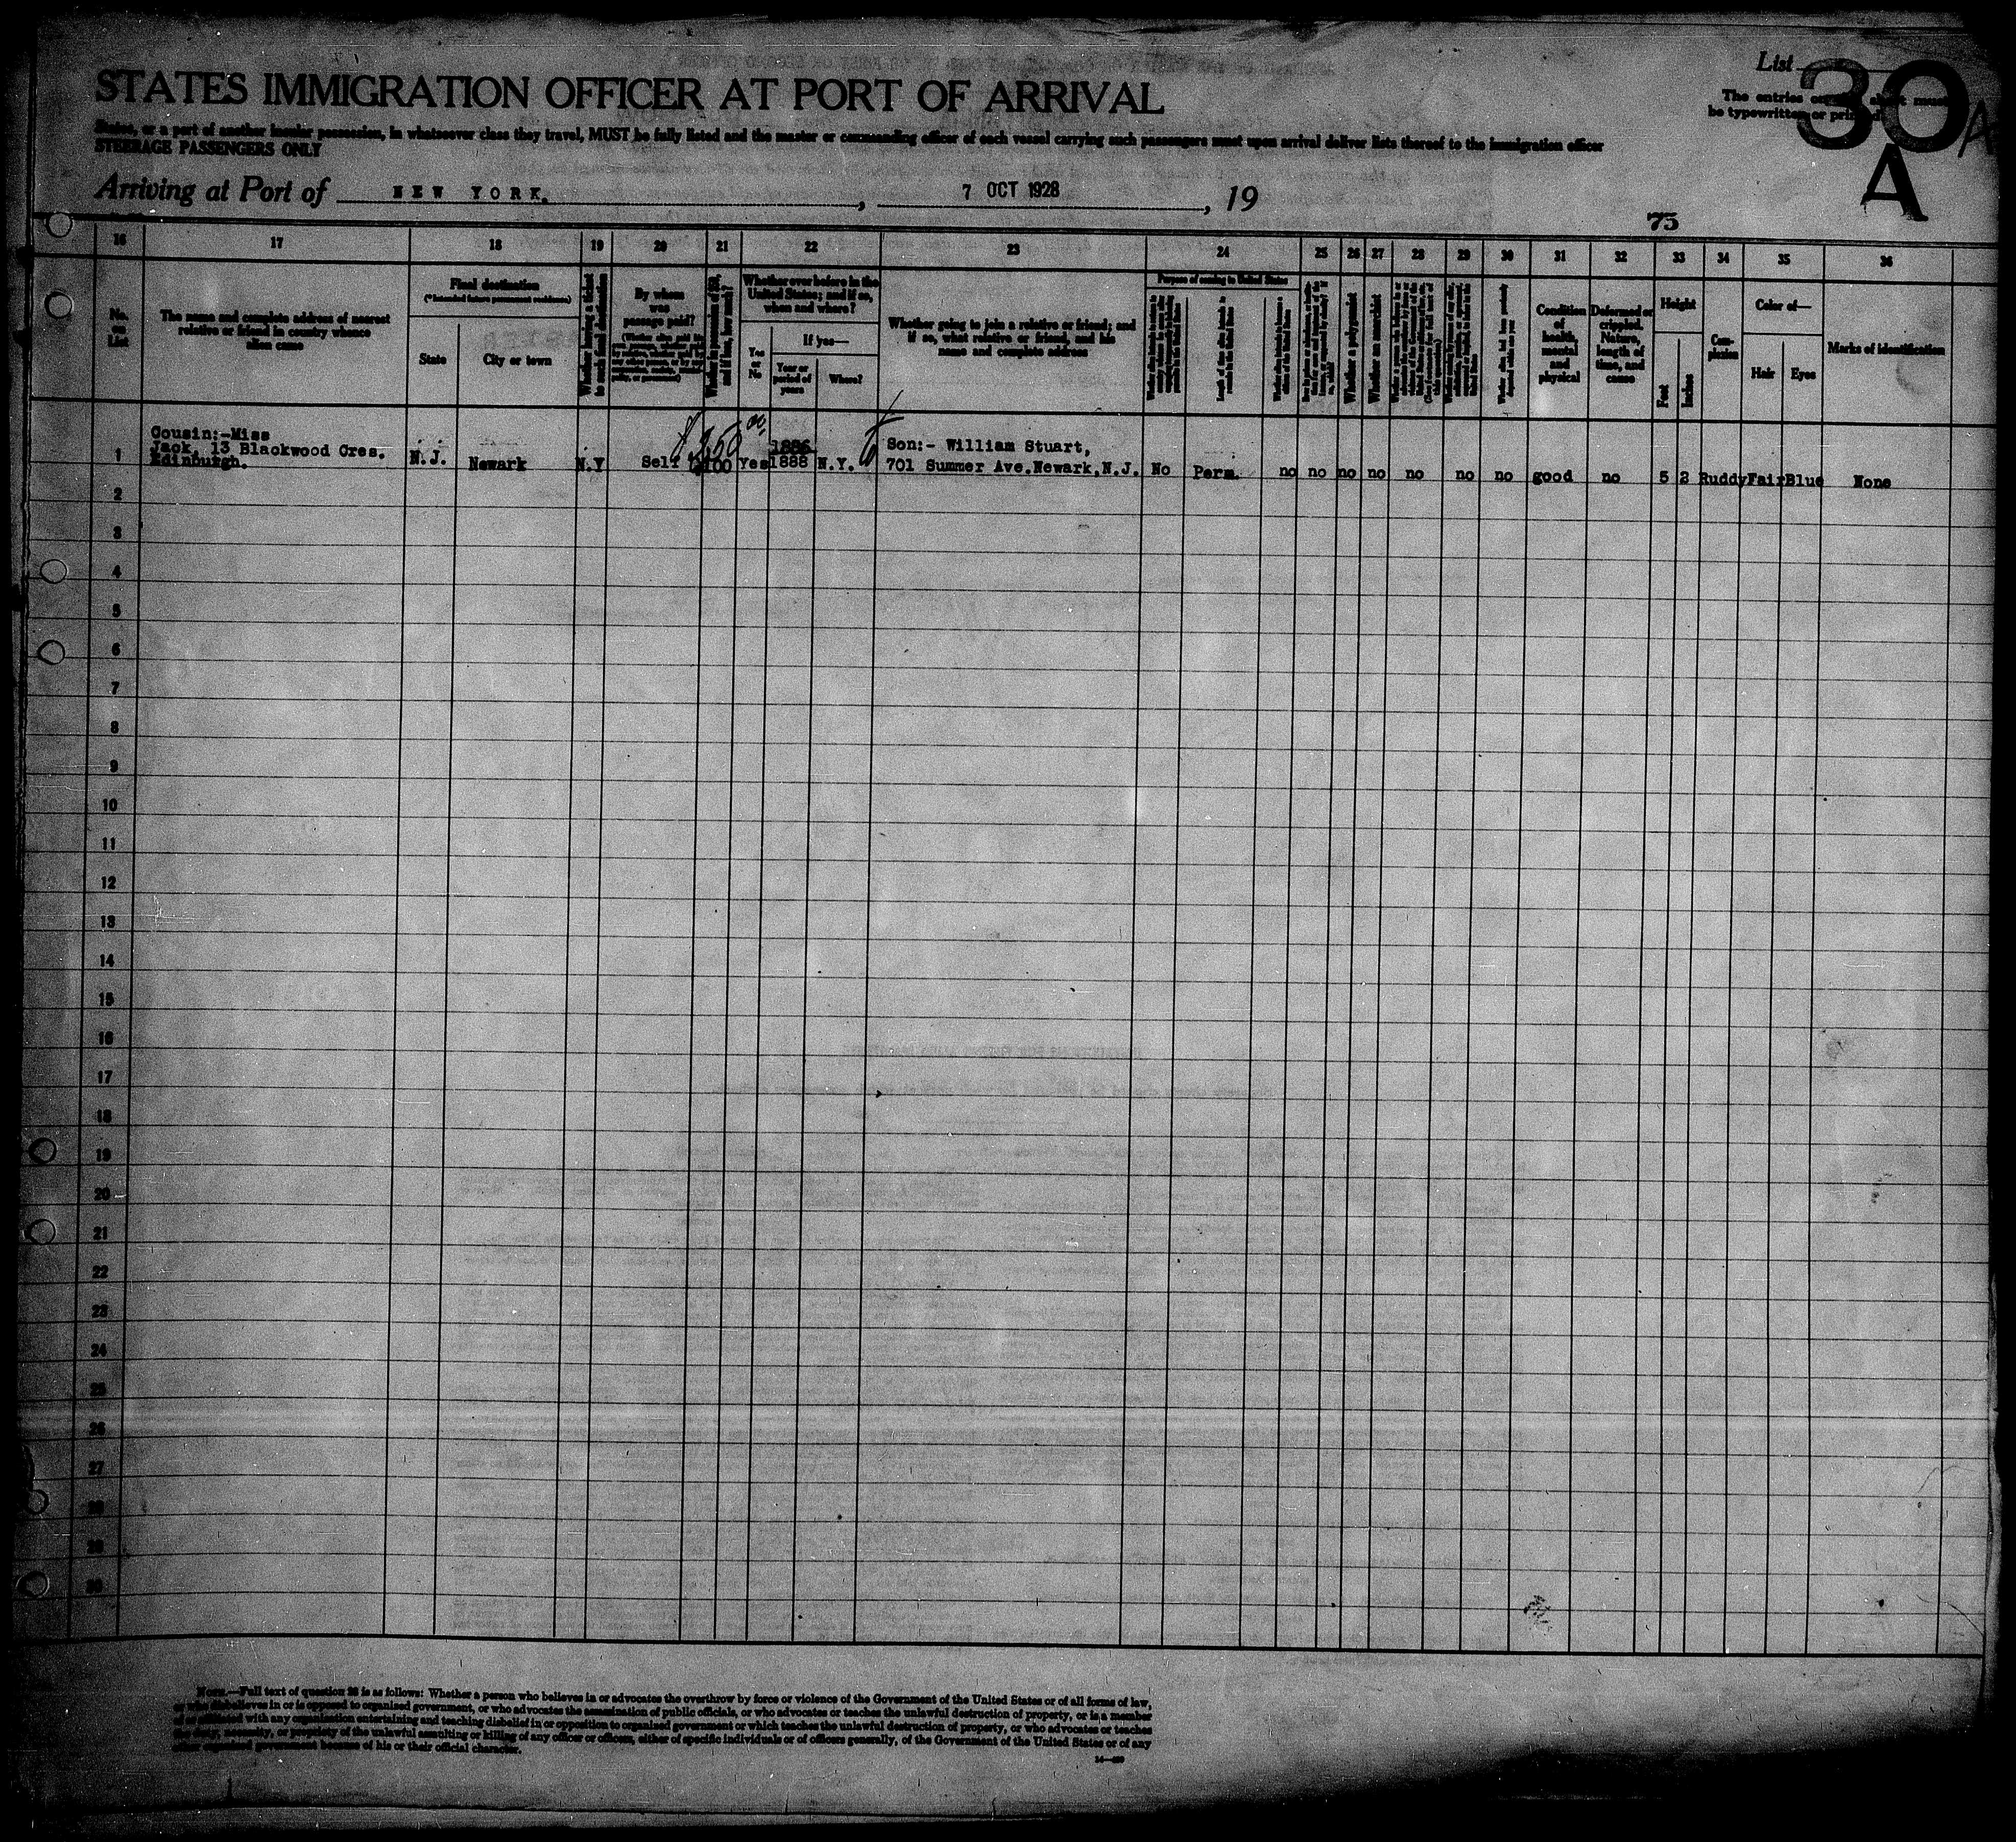 List 30 A
STATES IMMIGRATION OFFICER AT PORT OF ARRIVAL
The entries on sheet must
be typewritten or printed
A
States, or a part of another insular possession, in whatsoever class they travel, MUST be fully listed and the master or commanding officer of each vessel carrying such passengers must upon arrival deliver lists thereof to the immigration officer
STEERAGE PASSENGERS ONLY
Arriving at Port of NEW YORK. , 7 OCT 1928 , 19
73
16 17 18 19 20 21 22 23 24 25 26 27 28 29 30 31 32 33 34 35 36
No. on List
The name and complete address of nearest
relative or friend in country whence
alien came
Final destination
(*Intended future permanent residence)
State
City or town
Whether having a ticket to such final destination
By whom
was
passage paid?
Whether in possession of $50, and if less, how much?
Whether ever before in the
United States; and if so,
when and where?
Yes or No
If yes—
Year or period of years
Where?
Whether going to join a relative or friend; and
if so, what relative or friend, and his
name and complete address
Purpose of coming to United States
Whether a polygamist
Whether an anarchist
Condition of health, mental and physical
Deformed or crippled. Nature, length of time, and cause
Height
Feet
Inches
Complexion
Color of—
Hair
Eyes
Marks of identification
Cousin:-Miss
Jack, 13 Blackwood Cres.
Edinburgh.
$350 00
1886
Son:- William Stuart,
1 N.J. Newark N.Y Self $100 Yes 1888 N.Y. 701 Summer Ave.Newark,N.J. No Perm. no no no no no no no good no 5 2 Ruddy Fair Blue None
2
3
4
5
6
7
8
9
10
11
12
13
14
15
16
17
18
19
20
21
22
23
24
25
26
27
28
29
30
NOTE.—Full text of question 28 is as follows: Whether a person who believes in or advocates the overthrow by force or violence of the Government of the United States or of all forms of law,
or who disbelieves in or is opposed to organized government, or who advocates the assassination of public officials, or who advocates or teaches the unlawful destruction of property, or is a member
of or affiliated with any organization entertaining and teaching disbelief in or opposition to organized government or which teaches the unlawful destruction of property, or who advocates or teaches
the duty, necessity, or propriety of the unlawful assaulting or killing of any officer or officers, either of specific individuals or of officers generally, of the Government of the United States or of any
other organized government because of his or their official character.